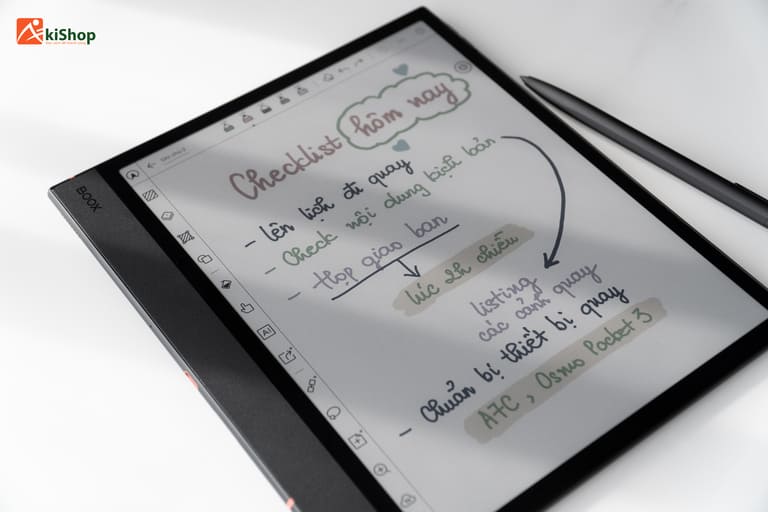 AkiShop
BOOX
Checklist hôm nay
- lên lịch đi quay
- Check nội dung kịch bản
- Họp giao ban
lúc 2h chiều
listing
các cảnh quay
- Chuẩn bị thiết bị quay
A7C, Osmo Pocket 3
AI